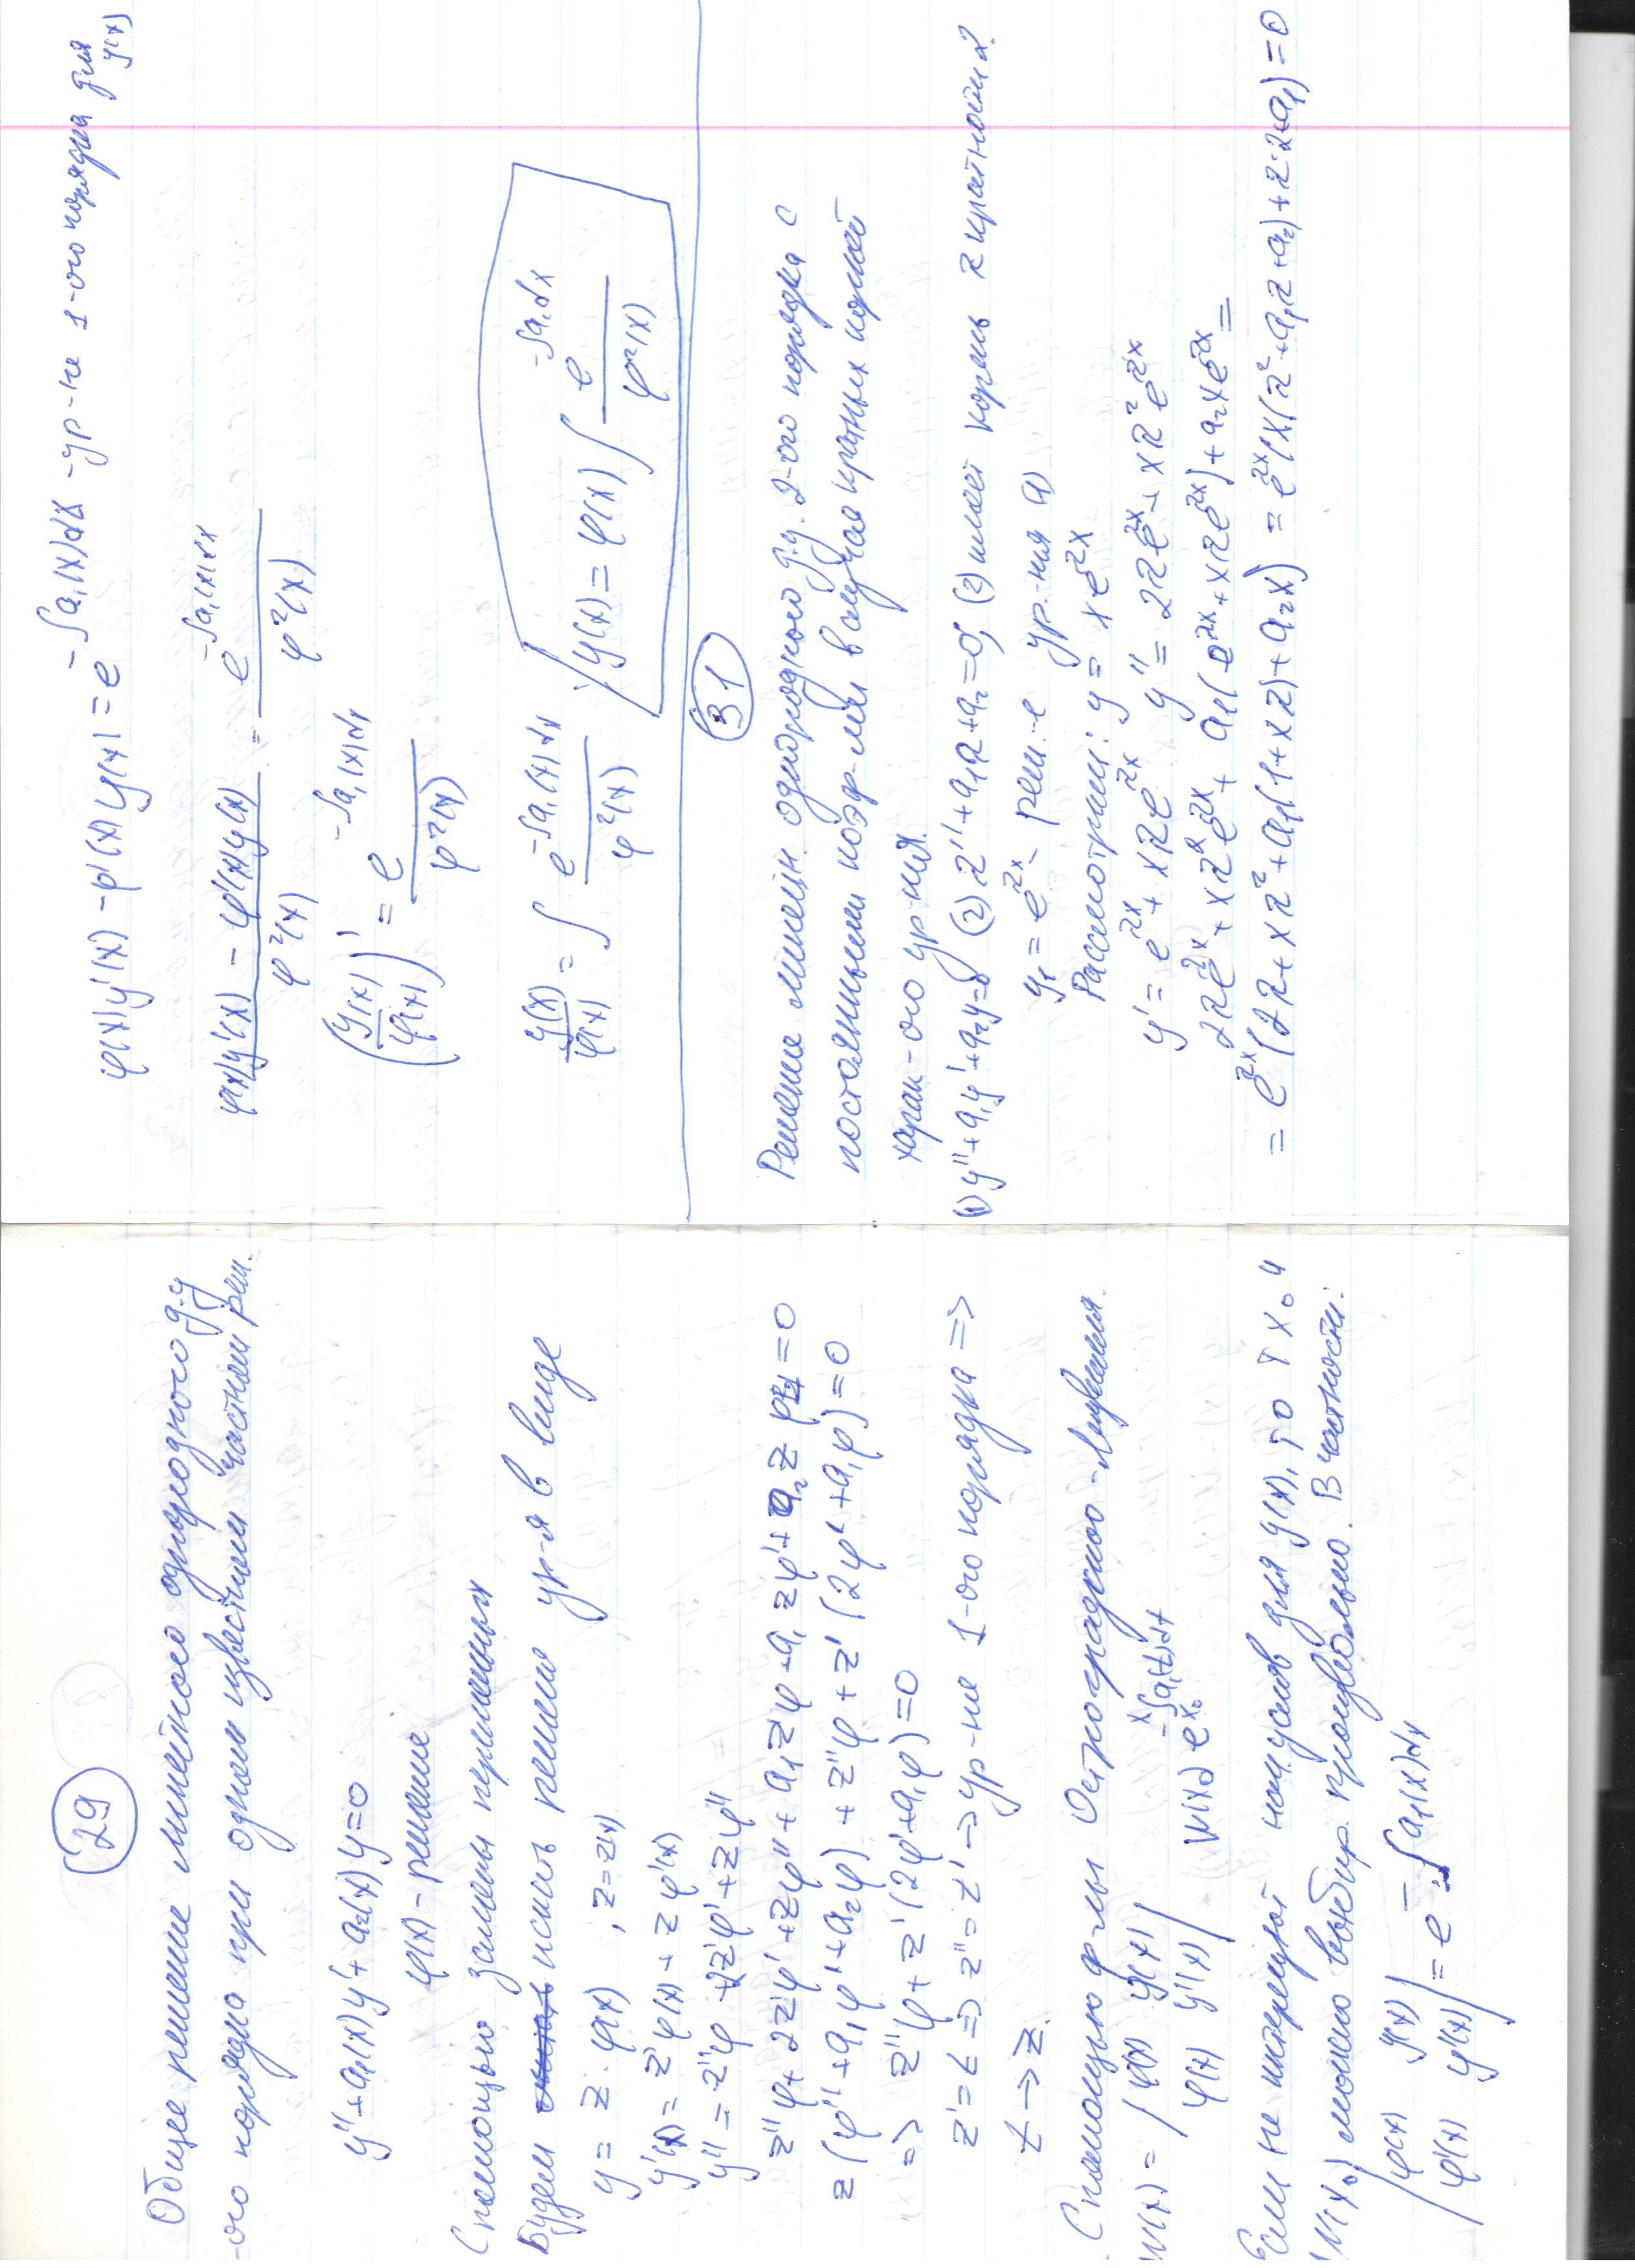 29
Общее решение линейного однородного д.у
-ого порядка при одном известном частном реш.
y'' + a₁(x)y' + a₂(x)y = 0
φ(x) – решение
С помощью замены переменных
Будем искать решение ур-я в виде
y = z · φ(x), z = z(x)
y'(x) = z'φ(x) + zφ'(x)
y'' = z''φ + 2z'φ' + zφ''
z''φ + 2z'φ' + zφ'' + a₁z'φ + a₁zφ' + a₂zφ = 0
z(φ'' + a₁φ' + a₂φ) + z''φ + z'(2φ' + a₁φ) = 0
=> z''φ + z'(2φ' + a₁φ) = 0
z' = t => z'' = t' → ур-не 1-ого порядка =>
t → z.
С помощью ф-лы Остроградского-Лиувилля.
W(x) = |φ(x) y(x)| W(x₀) e^{-∫_{x₀}^{x} a₁(t)dt}
|φ'(x) y'(x)|
Если не интересуют нач. услов для y(x), то т x₀ и
W(x₀) можно выбир. произвольно. В частности:
|φ(x) y(x)|
|φ'(x) y'(x)| = e^{-∫a₁(x)dx}
φ(x)y'(x) – φ'(x)y(x) = e^{-∫a₁(x)dx} – ур-не 1-ого порядка для y(x)
(φ(x)y'(x) – φ'(x)y(x)) / φ²(x) = e^{-∫a₁(x)dx} / φ²(x)
(y(x)/φ(x))' = e^{-∫a₁(x)dx} / φ²(x)
y(x)/φ(x) = ∫ e^{-∫a₁(x)dx} / φ²(x)
y(x) = φ(x) ∫ e^{-∫a₁dx} / φ²(x)
31
Решение линейн. однородного д.у. 2-ого порядка с
постоянными коэф-ми в случае кратных корней
харак-ого ур-ния.
(1) y'' + a₁y' + a₂y = 0 (2) λ² + a₁λ + a₂ = 0; (2) имеет корень λ кратности 2.
y₁ = e^{λx} – реш-е ур-ния (1)
Рассмотрим: y = xe^{λx}
y' = e^{λx} + xλe^{λx} y'' = 2λe^{λx} + xλ²e^{λx}
2λe^{λx} + xλ²e^{λx} + a₁(e^{λx} + xλe^{λx}) + a₂xe^{λx} =
= e^{λx}(2λ + xλ² + a₁(1 + xλ) + a₂x) = e^{λx}(x(λ² + a₁λ + a₂) + 2λ + a₁) = 0